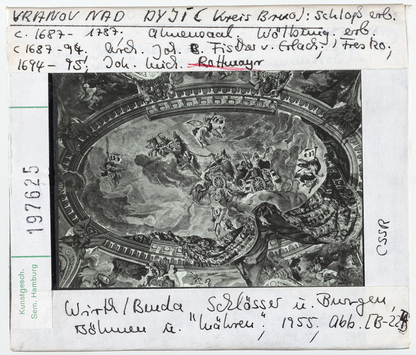 VRANOV NAD DYJÍ (Kreis Brno): Schloß erb.
c. 1687 - 1787. Ahnensaal Wölbung, erb.
c 1687-94. Arch. Joh. B. Fischer v. Erlach; Fresko,
1694-95, Joh. Mich. Rottmayr
197625
Kunstgesch.
Sem. Hamburg
CSSR
Wirth/Benda Schlösser u. Burgen,
Böhmen u. "Mähren", 1955, Abb. [B-22